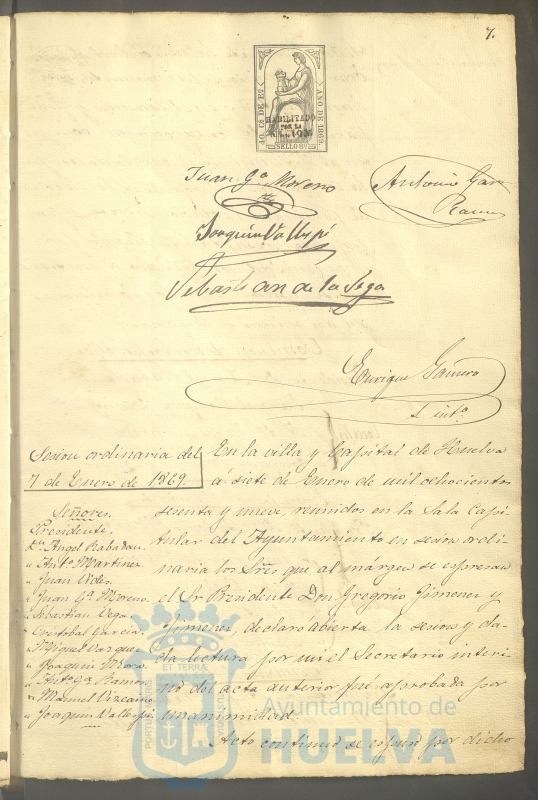 7.
40 Cs DE Eº
AÑO DE 1869
HABILITADO
POR LA
NACION
SELLO 8º
Juan Gª Moreno
Antonio Garª
Ramos
Joaquin Vallespí
Sebastian de la Vega
Enrique Gamero
S. intº
Sesion ordinaria del
7 de Enero de 1869.
Señores.
Presidente.
Dn Angel Rabadan.
" Antº Martinez
" Juan Vides
" Juan Gª Moreno.
" Sebastian Vega.
" Cristobal Garcia.
" Miguel Vazquez
" Joaquin Mora.
" Antº Gª Ramos
" Manuel Vizcaino
" Joaquin Vallespí
En la villa y Capital de Huelva
á siete de Enero de mil ochocientos
sesenta y nueve, reunidos en la Sala Capi-
tular del Ayuntamiento en sesion ordi-
naria los Sres que al márgen se espresan
el Sr Presidente Don Gregorio Gimenez y
Gimenez, declaró abierta la sesion y da-
da lectura por mi el Secretario interi-
no del acta anterior fué aprobada por
unanimidad.
Acto continuo se espuso por dicho
PORTUS MARIS
ET TERRÆ
CUSTODIA
Ayuntamiento de
HUELVA